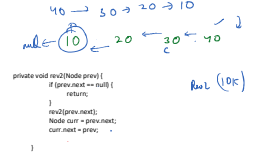 40 → 30 → 20 → 10
null ← 10 ← 20 ← 30 ← 40
c
private void rev2(Node prev) {
if (prev.next == null) {
return;
}
rev2(prev.next);
Node curr = prev.next;
curr.next = prev;
}
(10K)